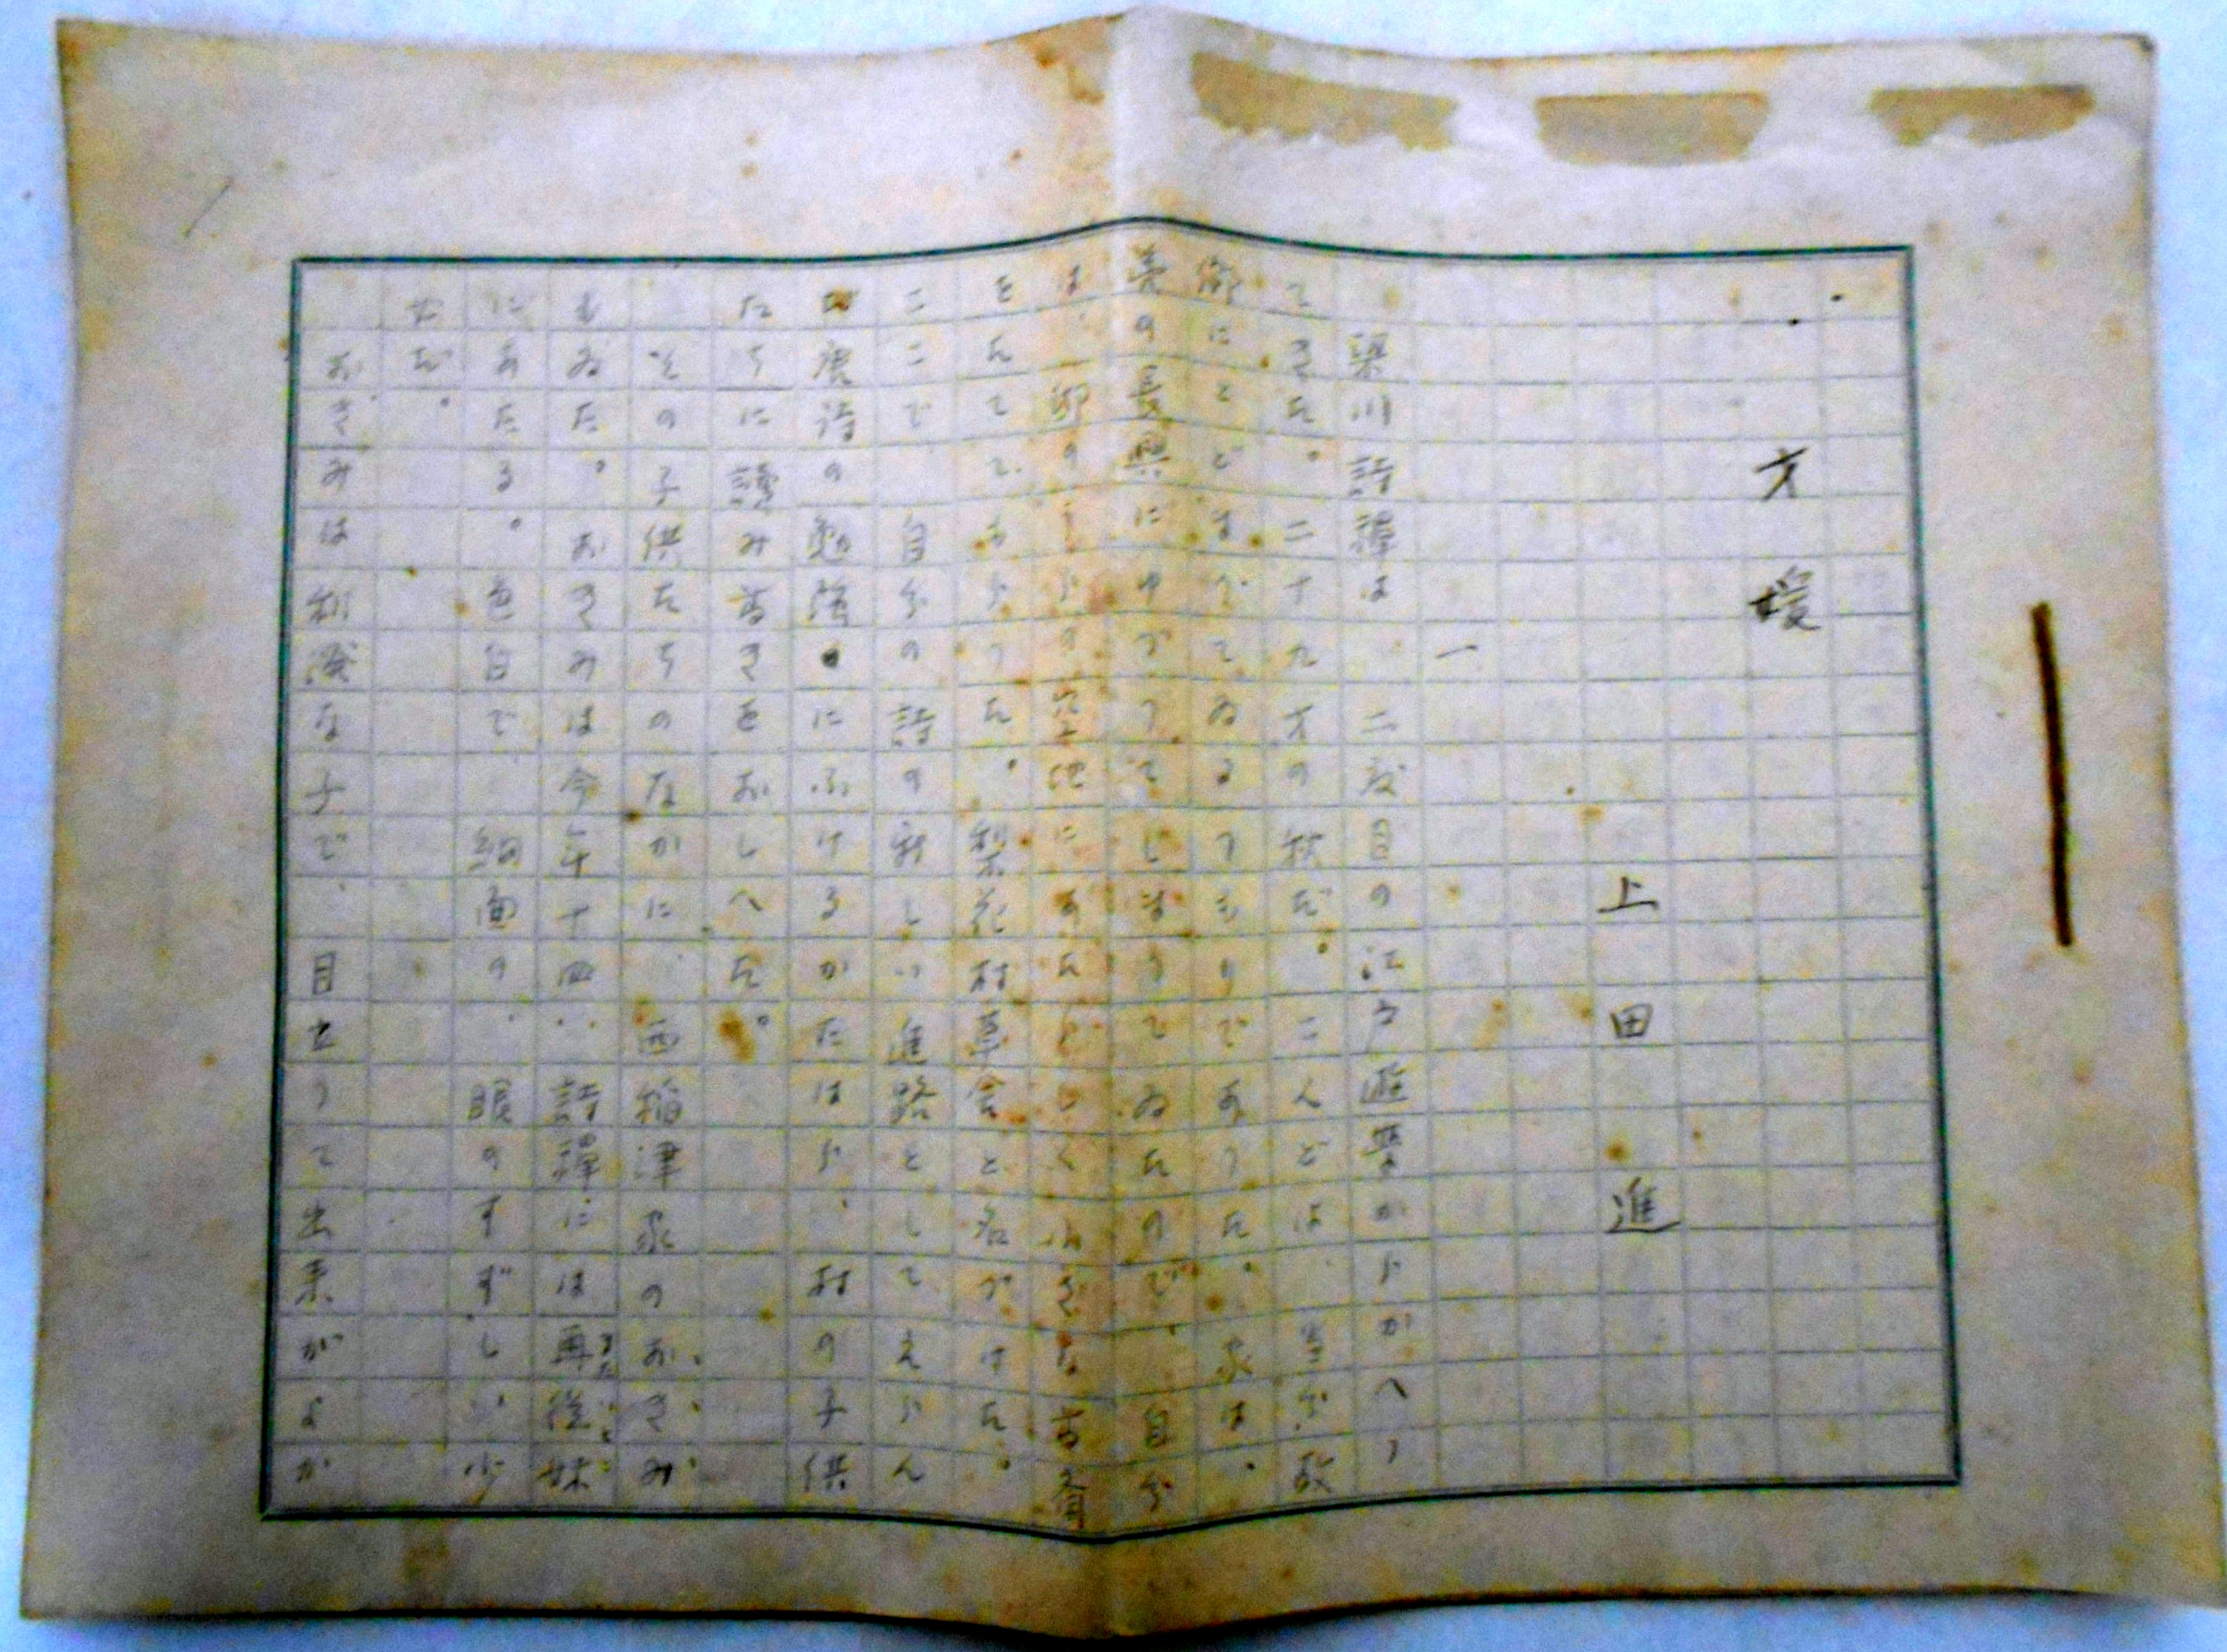 才媛
上田進
一
梁川詩禅は、二度目の江戸遊学からかへつ
てきた。二十九才の秋だ。こんどは、当分、故
郷にとどまつてゐるつもりであつた。家は、
養の長興にゆづつてしまうてゐたので、自分
は、邸のうらの空地にあたらしく小さな書斎
をたてて、もらつた。梨花村草舎と名づけた。
ここで、自分の詩の新しい進路としてえらん
だ唐詩の勉強にふけるかたはら、村の子供
たちに読み書きをおしへた。
その子供たちのなかに、西稲津家のおきみ
もゐた。おきみは今年十四、詩禅には再従妹
にあたる。色白で、細面の、眼のすずしい少
女だ。
おきみは利溌な子で、目立つて出来がよか
またいとこ